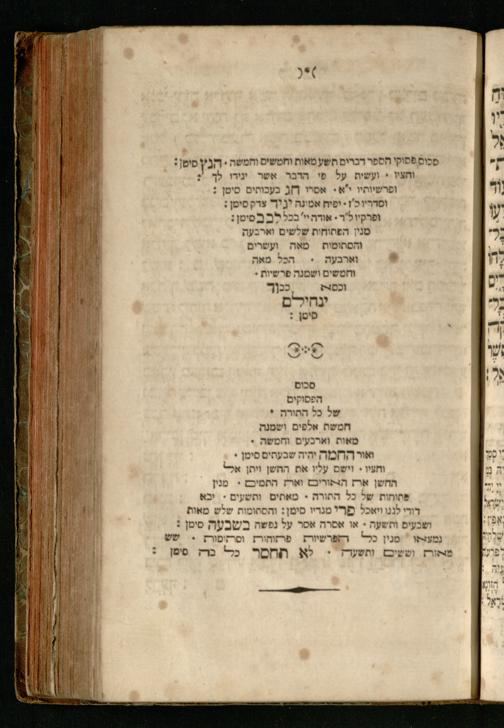 סכום פסוקי הספר דברים תשע מאות וחמשים וחמשה · הנץ סימן :
וחציו · ועשית על פי הדבר אשר יגידו לך :
ופרשיותיו י״א · אסרו חג בעבותים סימן :
וסדריו כ״ז · יפיח אמונה יגיד צדק סימן :
ופרקיו ל״ד · אודה יי׳ בכל לבב סימן :
מנין הפתוחות שלשים וארבעה
והסתומות מאה ועשרים
וארבעה · הכל מאה
וחמשים ושמנה פרשיות ·
וכסא כבוד
ינחילם
סימן :
סכום
הפסוקים
של כל התורה ·
חמשת אלפים ושמנה
מאות וארבעים וחמשה ·
ואור החמה יהיה שבעתים סימן ·
וחציו · וישם עליו את החשן ויתן אל
החשן את האורים ואת התמים · מנין
פתוחות של כל התורה · מאתים ותשעים · יבא
דודי לגנו ויאכל פרי מגדיו סימן : והסתומות שלש מאות
ושבעים ותשעה · או אסרה אסר על נפשה בשבעה סימן :
נמצאו מנין כל הפרשיות פתוחות וסתומות · שש
מאות וששים ותשעה · לא תחסר כל בה סימן :